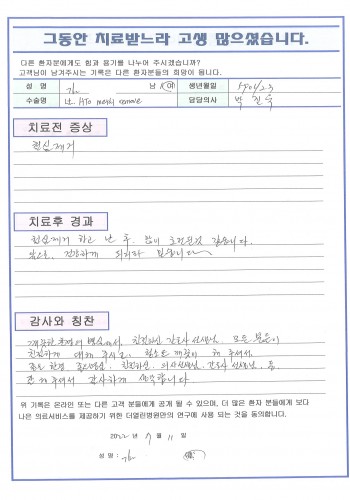 그동안 치료받느라 고생 많으셨습니다.
다른 환자분에게도 힘과 용기를 나누어 주시겠습니까?
고객님이 남겨주시는 기록은 다른 환자분들의 희망이 됩니다.
성 명 김 남 여 생년월일
수술명 HTO remove 담당의사 박
치료전 증상
철심제거
치료후 경과
철심제거 하고 난 후 많이 호전된것 같습니다.
앞으로 건강하게 되리라 믿습니다
감사와 칭찬
깨끗한 병실에서, 친절하신 간호사 선생님, 모든 분들이
친절하게 대해 주시고, 청소도 깨끗이 해 주셔서,
친절하신, 의사선생님, 간호사 선생님, 등
주셔서 감사하게 생각합니다
위 기록은 온라인 또는 다른 고객 분들에게 공개 될 수 있으며, 더 많은 환자 분들에게 보다
나은 의료서비스를 제공하기 위한 더열린병원만의 연구에 사용 되는 것을 동의합니다.
2022 년 월 11 일
성 명 : 김